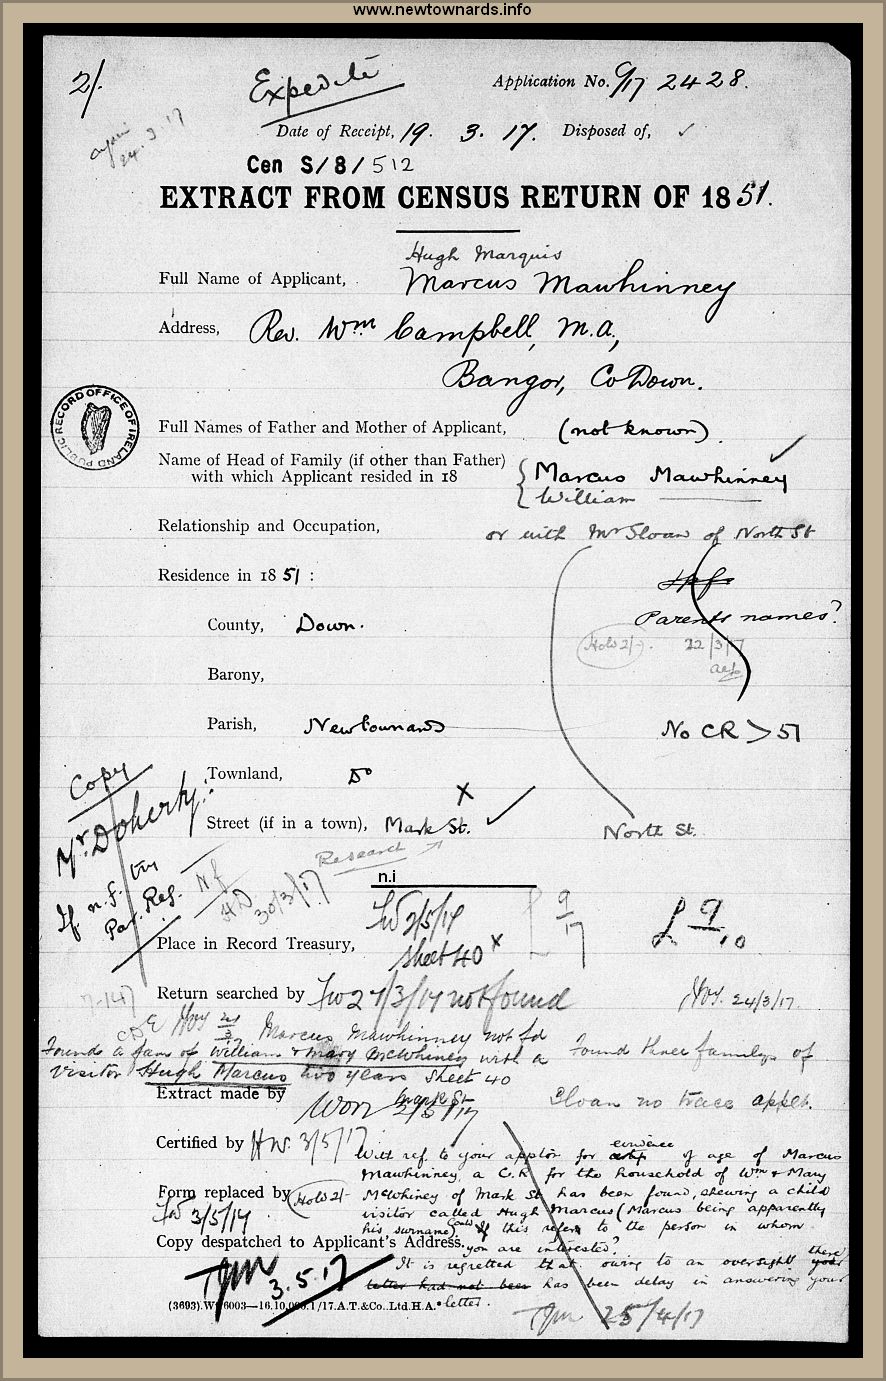 www.newtownards.info
2/.
Expedite
Application No. C/17 2428.
24.3.17
Date of Receipt, 19. 3. 17. Disposed of, ✓
Cen S/8/512
EXTRACT FROM CENSUS RETURN OF 1851.
Hugh Marquis
Full Name of Applicant, Marcus Mawhinney
Address, Rev. Wm Campbell, M.A.,
Bangor, Co Down.
PUBLIC RECORD OFFICE OF IRELAND
Full Names of Father and Mother of Applicant, (not known).
Name of Head of Family (if other than Father)
with which Applicant resided in 18
{ Marcus Mawhinney ✓
William
Relationship and Occupation, or with Mr Sloan of North St
Residence in 1851 :
Parents names?
County, Down.
Hold 2/-. 22/3/17
Barony,
Parish, Newtownards
No CR > 51
Copy
Townland, Do
Mr. Doherty:
Street (if in a town), Mark St. X ✓
North St.
Research
If n.f. try
Par. Reg.
n.f
HD 30/3/17
n.i
2/5/17
sheet 40 x
£ 9/17
£ 9/10
Place in Record Treasury,
7-147
Return searched by 27/3/17 not found
Hoy. 24/3/17.
Marcus Mawhinney not fd
Found a fam of William & Mary McWhiney with a
visitor Hugh Marcus two years sheet 40
Found three familys of
Sloan no trace applt.
Mark St
Extract made by 2/5/17
Certified by HW. 3/5/17
With ref. to your appltn for evidence of age of Marcus
Mawhinney, a C.R. for the household of Wm & Mary
Form replaced by Hold 2/-
McWhiney of Mark St has been found, shewing a child
3/5/17
visitor called Hugh Marcus (Marcus being apparently
his surname) Could this refer to the person in whom
Copy despatched to Applicant's Address,
you are interested?
3.5.17
It is regretted that owing to an oversight there
letter had not been has been delay in answering your
letter.
(3693).Wt.6003—16.10,000.1/17.A.T.&Co.,Ltd.H.A.
25/4/17